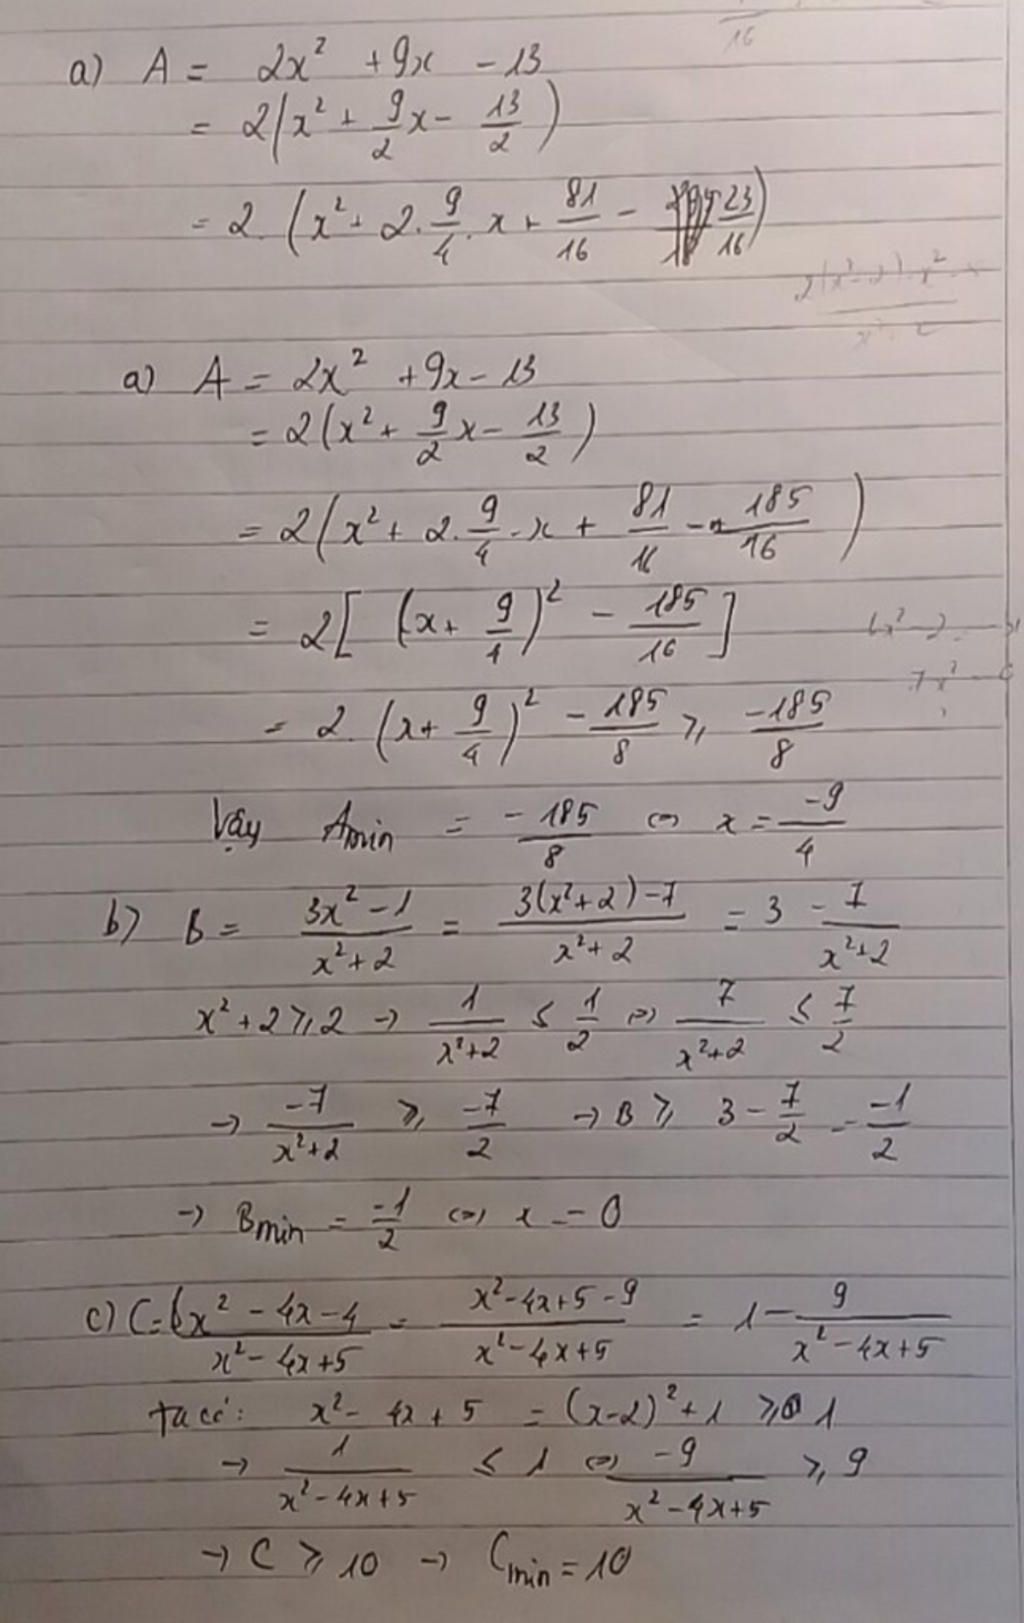 a) A = 2x² + 9x - 13
= 2(x² + 9/2 x - 13/2)
= 2. (x² + 2. 9/4 . x + 81/16 - 23/16)
a) A = 2x² + 9x - 13
= 2(x² + 9/2 x - 13/2)
= 2(x² + 2. 9/4 . x + 81/16 - 185/16)
= 2[(x + 9/4)² - 185/16]
= 2. (x + 9/4)² - 185/8 ⩾ -185/8
Vậy Amin = -185/8 ⇔ x = -9/4
b) B = (3x² - 1)/(x² + 2) = (3(x² + 2) - 7)/(x² + 2) = 3 - 7/(x² + 2)
x² + 2 ⩾ 2 → 1/(x² + 2) ≤ 1/2 ⇔ 7/(x² + 2) ≤ 7/2
→ -7/(x² + 2) ⩾ -7/2 → B ⩾ 3 - 7/2 = -1/2
→ Bmin = -1/2 ⇔ x = 0
c) C = (x² - 4x - 4)/(x² - 4x + 5) = (x² - 4x + 5 - 9)/(x² - 4x + 5) = 1 - 9/(x² - 4x + 5)
ta có: x² - 4x + 5 = (x - 2)² + 1 ⩾ 1
→ 1/(x² - 4x + 5) ≤ 1 ⇔ -9/(x² - 4x + 5) ⩾ 9
→ C ⩾ 10 → Cmin = 10